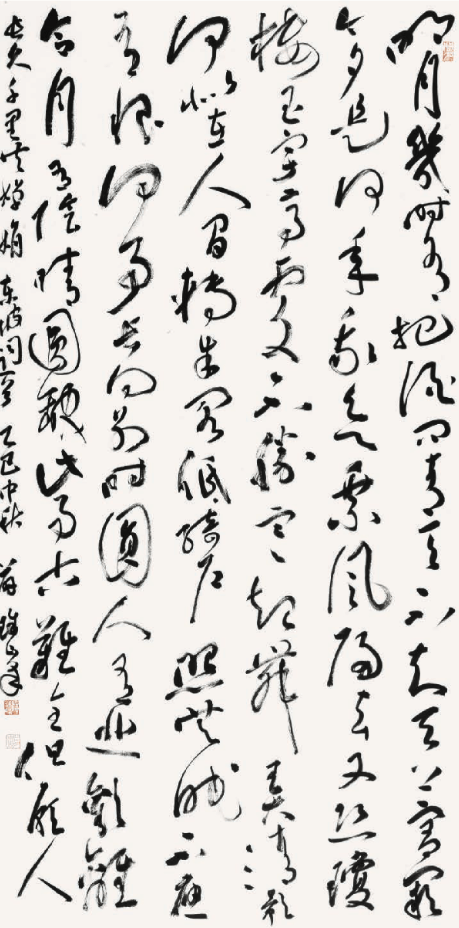 明月幾時有把酒問青天不知天上宮闕
今夕是何年我欲乘風歸去又恐瓊
樓玉宇高處不勝寒起舞弄清影
何似在人間轉朱閣低綺戶照無眠不應
有恨何事長向別時圓人有悲歡離
合月有陰晴圓缺此事古難全但願人
長久千里共嬋娟 東坡詞 乙巳中秋